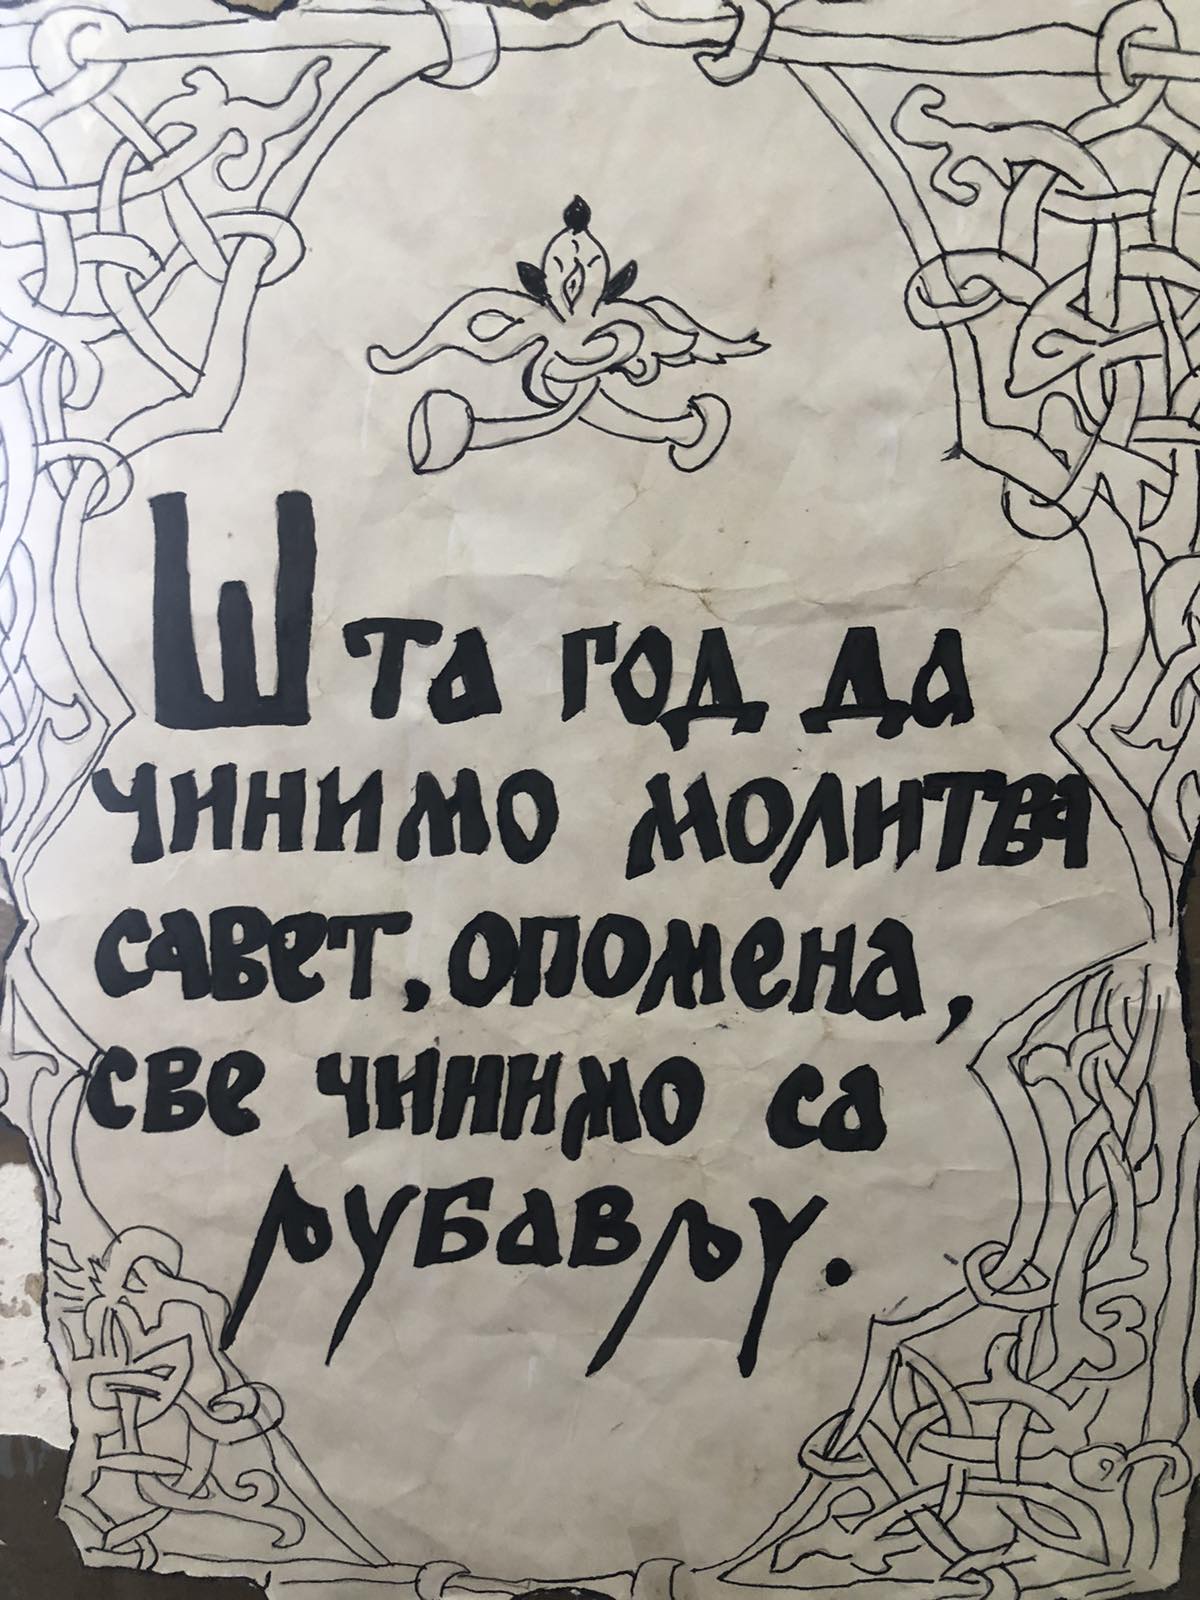 Шта год да
чинимо молитва
савет, опомена,
све чинимо са
љубављу.